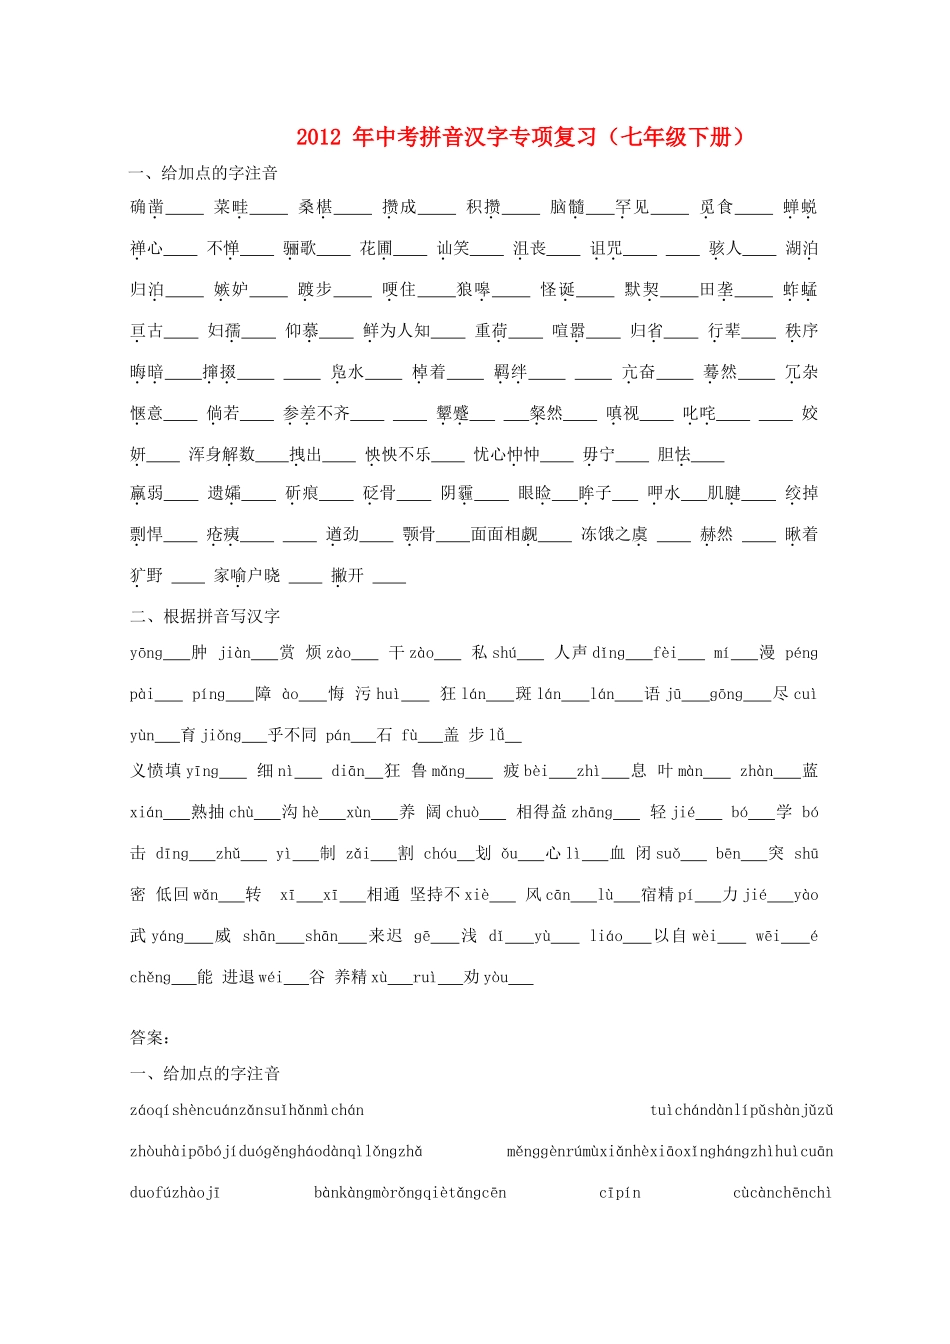 2012 年中考拼音汉字专项复习（七年级下册）
一、给加点的字注音
确凿____ 菜畦____ 桑椹____ 攒成____ 积攒____ 脑髓___罕见____ 觅食____ 蝉蜕
禅心____ 不惮____ 骊歌____ 花圃____ 讪笑____ 沮丧____ 诅咒____ ____ 骇人____ 湖泊
归泊____ 嫉妒____ 踱步____ 哽住____狼嗥____ 怪诞____ 默契____田垄____ 蚱蜢
亘古____ 妇孺____ 仰慕____ 鲜为人知____ 重荷____ 喧嚣____ 归省____ 行辈____ 秩序
晦暗____撺掇____ ____ 凫水____ 棹着____ 羁绊____ ____ 亢奋____ 蓦然____ 冗杂
惬意____ 倘若____ 参差不齐____ ____ 颦蹙___ ___粲然____ 嗔视____ 叱咤____ ____ 姣
妍____ 浑身解数____拽出____ 怏怏不乐____ 忧心忡忡____ 毋宁____ 胆怯____
羸弱____ 遗孀____ 斫痕____ 砭骨____ 阴霾____ 眼睑___眸子___ 呷水___肌腱____ 绞掉
剽悍____ 疮痍____ ____ 遒劲____ 颚骨____面面相觑____ 冻饿之虞____ 赫然____ 瞅着
犷野 ____ 家喻户晓 ____ 撇开 ____
二、根据拼音写汉字
yōng___肿 jiàn___赏 烦 zào___ 干 zào___ 私 shú___ 人声 dǐng___fèi___ mí___漫 péng
pài___ píng___障 ào___悔 污 huì___ 狂 lán___斑 lán___lán___语 jū___gōng___尽 cuì
yùn___育 jiǒng___乎不同 pán___石 fù___盖 步 lǚ__
义愤填 yīng___ 细 nì___ diān__狂 鲁 mǎng___ 疲 bèi___zhì___息 叶 màn___ zhàn___蓝
xián___熟抽 chù___沟 hè___xùn___养 阔 chuò___ 相得益 zhāng___ 轻 jié___ bó___学 bó
击 dīng___zhǔ___ yì___制 zǎi___割 chóu__划 ǒu___心 lì___血 闭 suǒ___ bēn___突 shū
密 低回 wǎn___转 xī___xī___相通 坚持不 xiè___ 风 cān___lù___宿精 pí___力 jié___yào
武 yáng___威 shān___shān___来迟 gē___浅 dǐ___yù___ liáo___以自 wèi___ wēi___é
chěng___能 进退 wéi___谷 养精 xù___ruì___劝 yòu___
答案:
一、给加点的字注音
záoqíshèncuánzǎnsuǐhǎnmìchán tuìchándànlípǔshànjǔzǔ
zhòuhàipōbójíduógěngháodànqìlǒngzhǎ měnggènrúmùxiǎnhèxiāoxǐnghángzhìhuìcuān
duofúzhàojī bànkàngmòrǒngqiètǎngcēn cīpín cùcànchēnchì